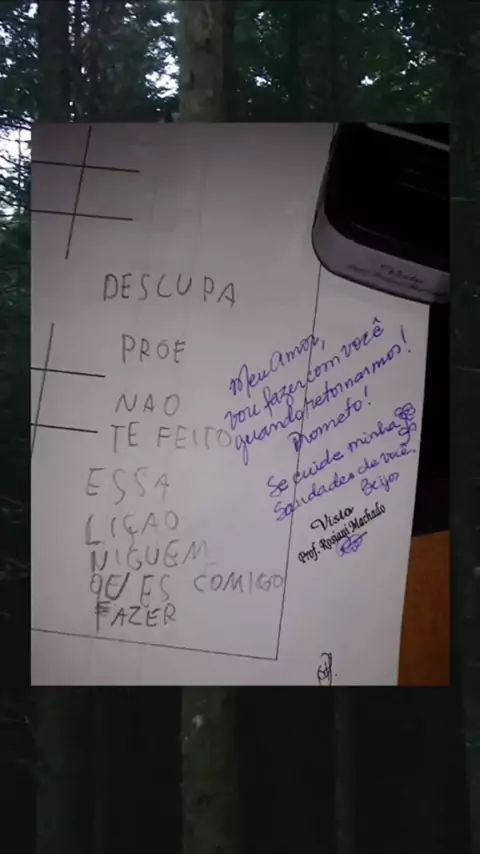 DESCUPA
PROE
NAO
TE FEITO
ESSA
LIÇAO
NIGUEM
QUES COMIGO
FAZER
Meu Amor,
vou fazer com você
quando retornarmos!
Prometo!
Se cuide minha
Saudades de você.
Beijos
Visto
Prof. Rosiani Machado
Visto